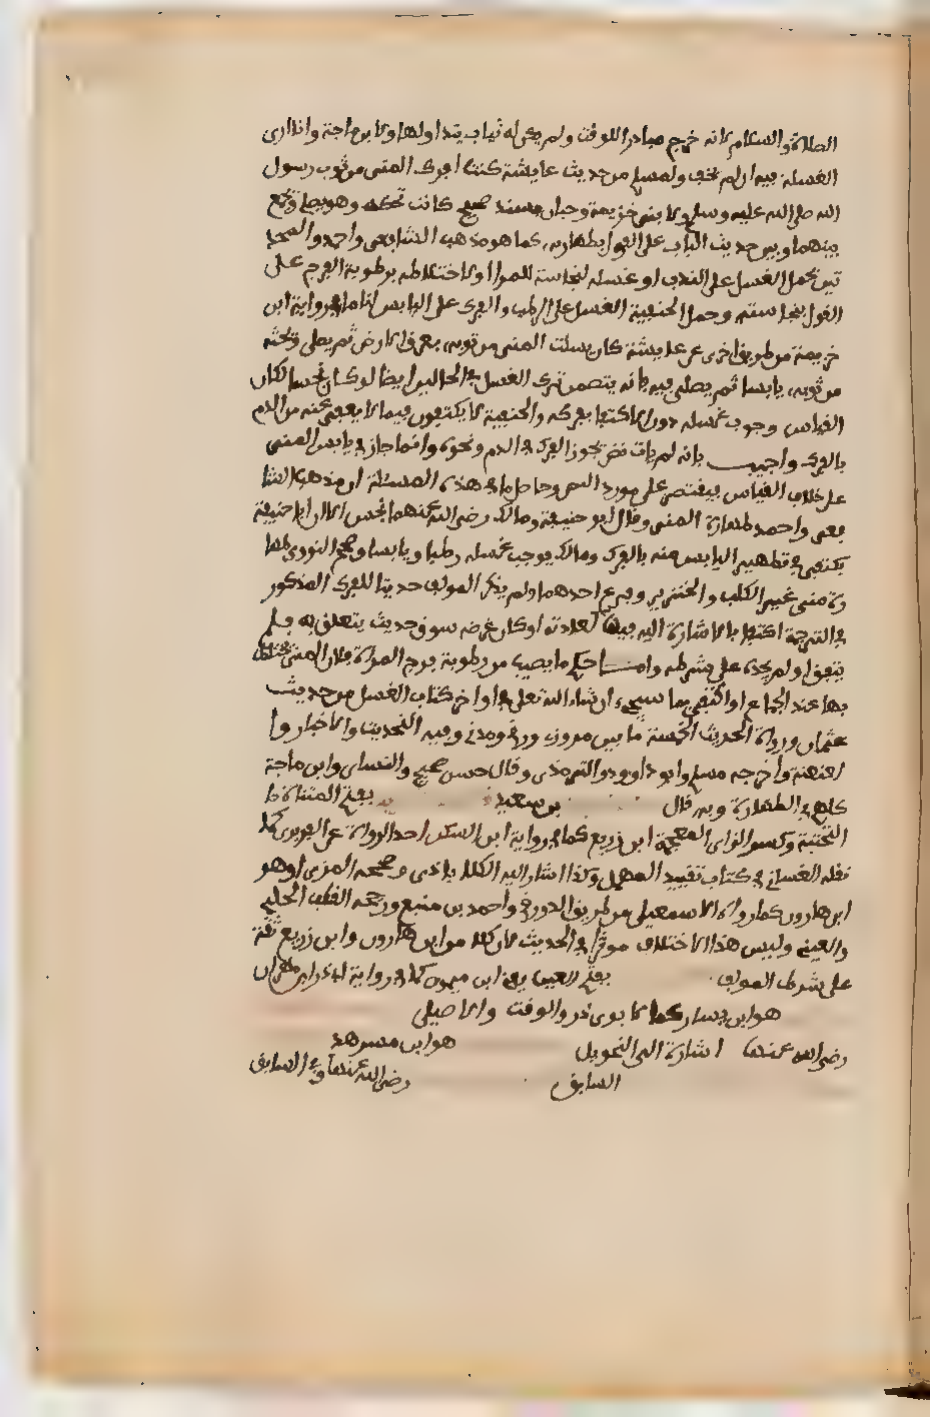 الصلاة والسلام لانه خرج مبادرا للوقت ولم يكن له ثياب يتداولها ولابن ماجة وانا ارى
الغسله فيه اي لم يجف ولمسلم من حديث عايشة كنت افرك المني من ثوب رسول
الله صلى الله عليه وسلم ولابني خزيمة وحبان بسند صحيح كانت تحكه وهو يصلي وجمع
بينهما وبين حديث الباب على القول بطهارته كما هو مذهب الشافعي واحمد والمحد
ثين بحمل الغسل على الندب او غسله لنجاسة الممر او لاختلاطه برطوبة الفرج على
القول بنجاسته وحمل الحنفية الغسل على الرطب والفرك على اليابس لنا ما في رواية ابن
خزيمة من طريق اخرى عن عايشة كان يسلت المني من ثوبه بعرق الاذخر ثم يصلي وتحته
من ثوبه يابسا ثم يصلي فيه فانه يتضمن ترك الغسل في الحالين ايضا لو كان نجسا لكان
القياس وجوب غسله دون الاكتفا بفركه والحنفية لا يكتفون فيما لا يعفى عنه من الدم
بالفرك واجيب بانه لم يات نص بجواز الفرك في الدم ونحوه وانما جاز في يابس المني
على خلاف القياس فيقتصر على مورد النص وحاصل ما في هذه المسئلة ان مذهب الشا
فعي واحمد طهارة المني وقال ابو حنيفة ومالك رضي الله عنهما نجس الا ان ابا حنيفة
يكتفي في تطهير اليابس منه بالفرك ومالك يوجب غسله رطبا ويابسا وصحح النووي طها
رة مني غير الكلب والخنزير وفرع احدهما ولم يذكر المولف حديثا للفرك المذكور
في الترجمة اكتفا بالاشارة اليه فيها كعادته او كان غرضه سوق حديث يتعلق به فلم
يتفق او لم يجده على شرطه واما حكم ما يصيب من رطوبة فرج المراة فلان المني يختلط
بها عند الجماع او اكتفى بما سيجيء ان شاء الله تعلى في اواخر كتاب الغسل من حديث
عثمان ورواة الحديث الخمسة ما بين مروزي ورقي ومدني وفيه التحديث والاخبار وا
لعنعنة واخرجه مسلم وابو داوود والترمذي وقال حسن صحيح والنساي وابن ماجة
كلهم في الطهارة وبه قال بن سعيد بفتح المثناة
التحتية وكسر الزاي المعجمة ابن زريع كما في رواية ابن السكن احد الرواة عن الفربري كما
نقله الغساني في كتاب تقييد المهمل وكذا اشار اليه الكلاباذي وصححه المزي او هو
ابن هارون كما رواه الاسمعيلي من طريق الدورقي واحمد بن منيع ورجحه القطب الحلبي
والعيني وليس هذا الاختلاف موثرا في الحديث لان كلا من ابن هارون وابن زريع ثقة
على شرط المولف بفتح العين يعني ابن ميمون كما في رواية ابي ذر ابن مهران
هو ابن يسار كما لابوي ذر والوقت والاصيلي
رضي الله عنها اشارة الى التحويل هو ابن مسرهد
السابق رضي الله عنها وفي السابق